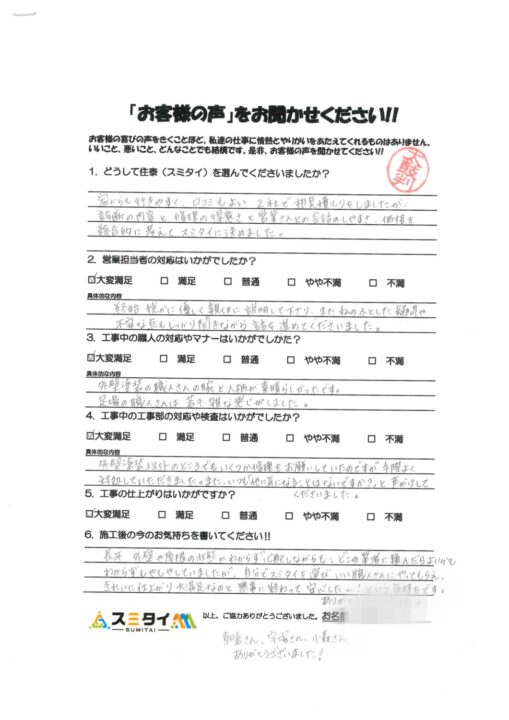 「お客様の声」をお聞かせください!!
お客様の喜びの声をきくことほど、私達の仕事に情熱とやりがいをあたえてくれるものはありません。
いいこと、悪いこと、どんなことでも結構です。是非、お客様の声を聞かせてください!!
太鼓判
1. どうして住泰（スミタイ）を選んでくださいましたか？
家からも行きやすく、口コミもよい 2社で相見積もりをしましたが、
診断の内容と 修理の 営業さんとの会話のしやすさ、価格を
総合的に考えて スミタイに決めました。
2. 営業担当者の対応はいかがでしたか？
☑大変満足 □ 満足 □ 普通 □ やや不満 □ 不満
具体的な内容
終始 穏かに優しく親切に説明して下さり、また 私のふとした疑問や
不安な点もしっかり聞きながら 話を進めてくださいました。
3. 工事中の職人の対応やマナーはいかがでしかた？
☑大変満足 □ 満足 □ 普通 □ やや不満 □ 不満
具体的な内容
外壁塗装の職人さんの腕と人柄が素晴らしかったです。
足場の職人さんは 若干 雑な感じがしました。
4. 工事中の工事部の対応や検査はいかがでしたか？
☑大変満足 □ 満足 □ 普通 □ やや不満 □ 不満
具体的な内容
外壁塗装以外のところでもいくつか修理をお願いしていたのですが 手際よく
対処していただきました。また、いつも「他に気になることはないですか?」と 声がけして
くださいました。
5. 工事の仕上がりはいかがですか？
☑大変満足 □ 満足 □ 普通 □ やや不満 □ 不満
6. 施工後の今のお気持ちを書いてください!!
長年 外壁や屋根の状態がわからず心配しながらも、どこの業者に頼んだらよいかも
わからずもやもやしていましたが、自分でスミタイを選び いい職人さんにやってもらえ、
きれいに仕上がり 大満足なのと 無事に終わって 安心した〜 という気持ちです。
ありがとう
スミタイ
SUMITAI
以上、ご協力ありがとうございました。 お名前
さん、 さん、小森さん
ありがとうございました！